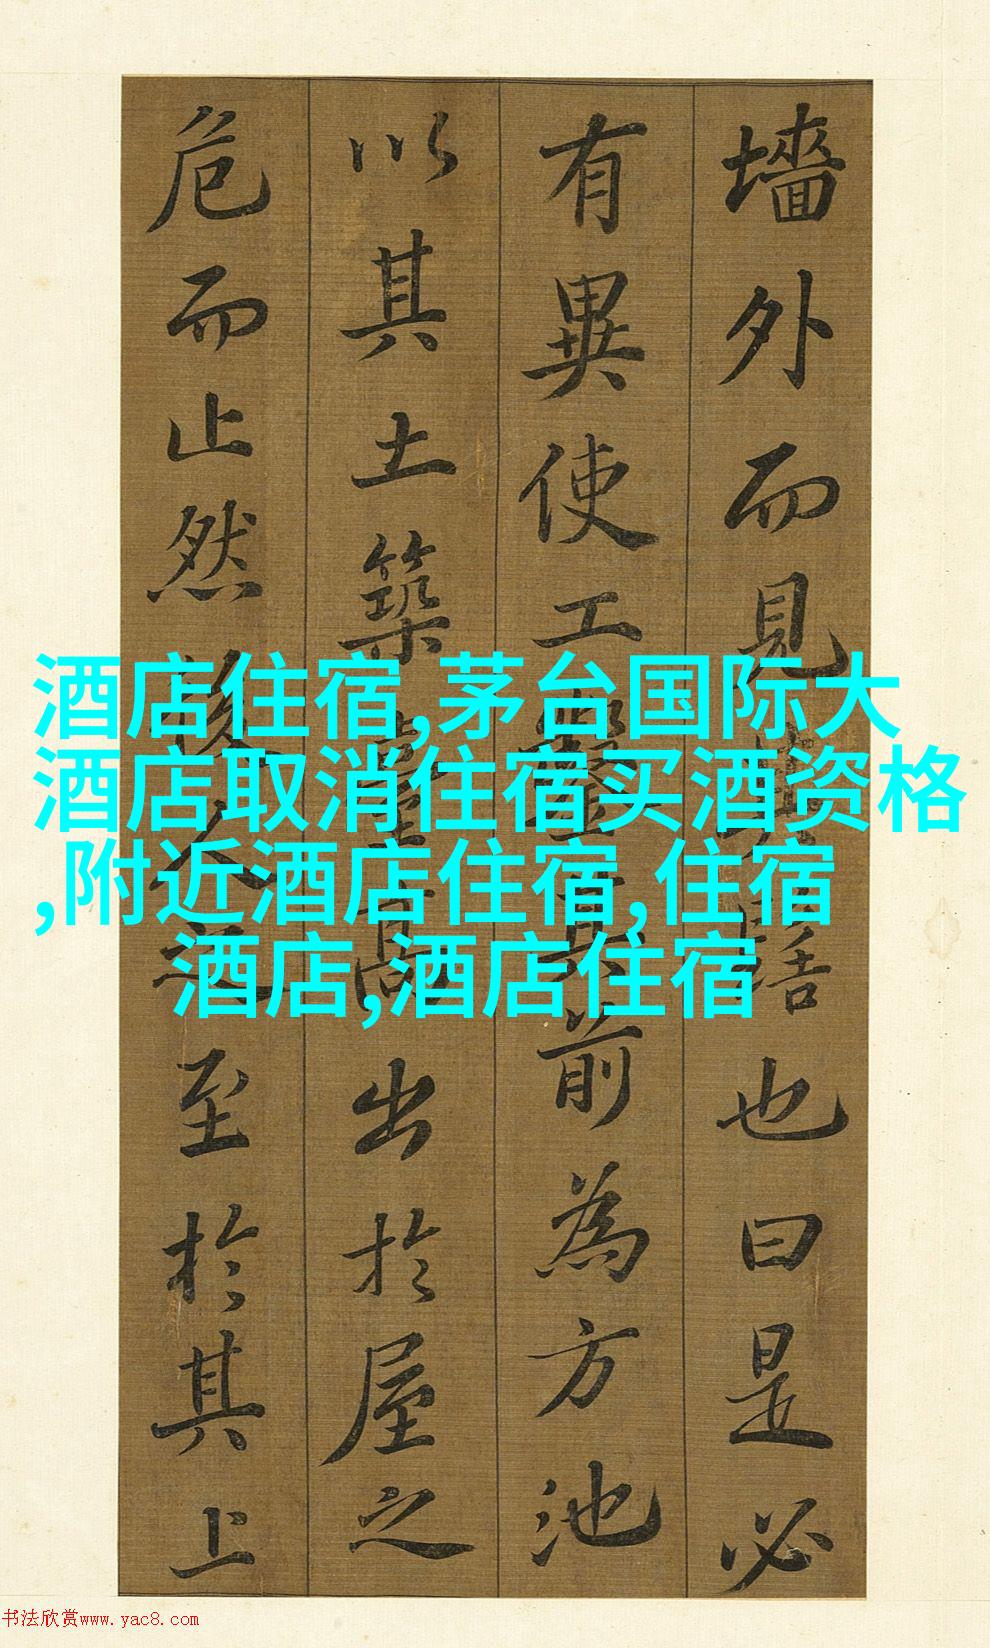 墻外而見其髻也曰是必
有異使工鑿其前為方池
以其土築臺高出於屋之
危而止然後人之至於其上
酒店住宿,茅台国际大
酒店取消住宿买酒资格
,附近酒店住宿,住宿
酒店,酒店住宿
书法欣赏www.yac8.com